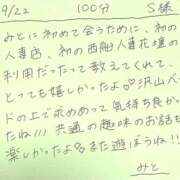 9/22 100分 S様
みとに初めて会うために、初の
人妻店、初の西船人妻花壇の
利用だったって教えてくれて、
とっても嬉しかったよ♡沢山ベッ
ドの上で求めあって気持ち良かっ
たね!!! 共通の趣味のお話も
楽しかったよ♪また遊ぼうね!!
みと